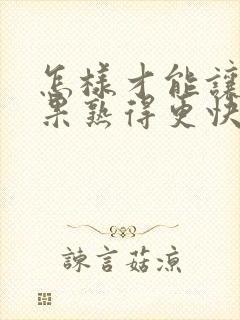 怎樣才能讓
果熟得更快
諫言菇涼